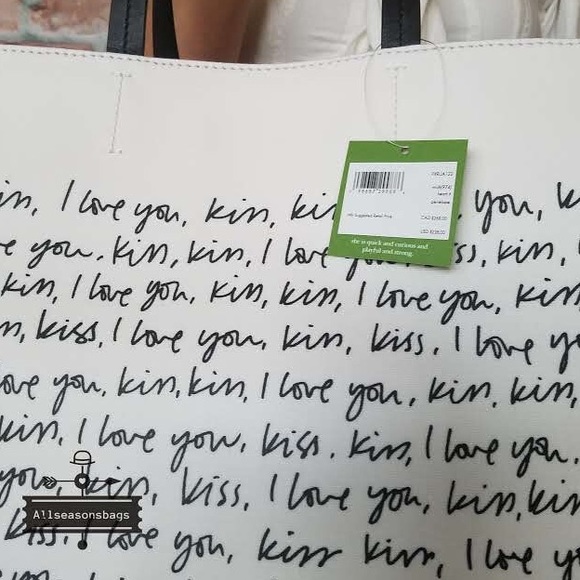 kiss, I love you, kiss, you,
you, kiss, kiss, I love kiss, kiss,
kiss, I love you, kiss, kiss, I love you, kiss
kiss, I love you, kiss, kiss, I love you
love you, kiss, kiss, I love you, kiss, kiss,
kiss, I love you, kiss, kiss, I love you,
you, kiss, kiss, I love you, kiss, kiss
kiss, I love you, kiss kiss, I love
she is quick and curious and
playful and strong.
Allseasonsbags